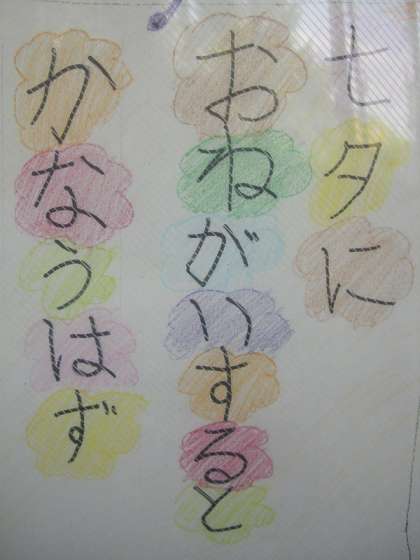 七夕に
おねがいすると
かなうはず